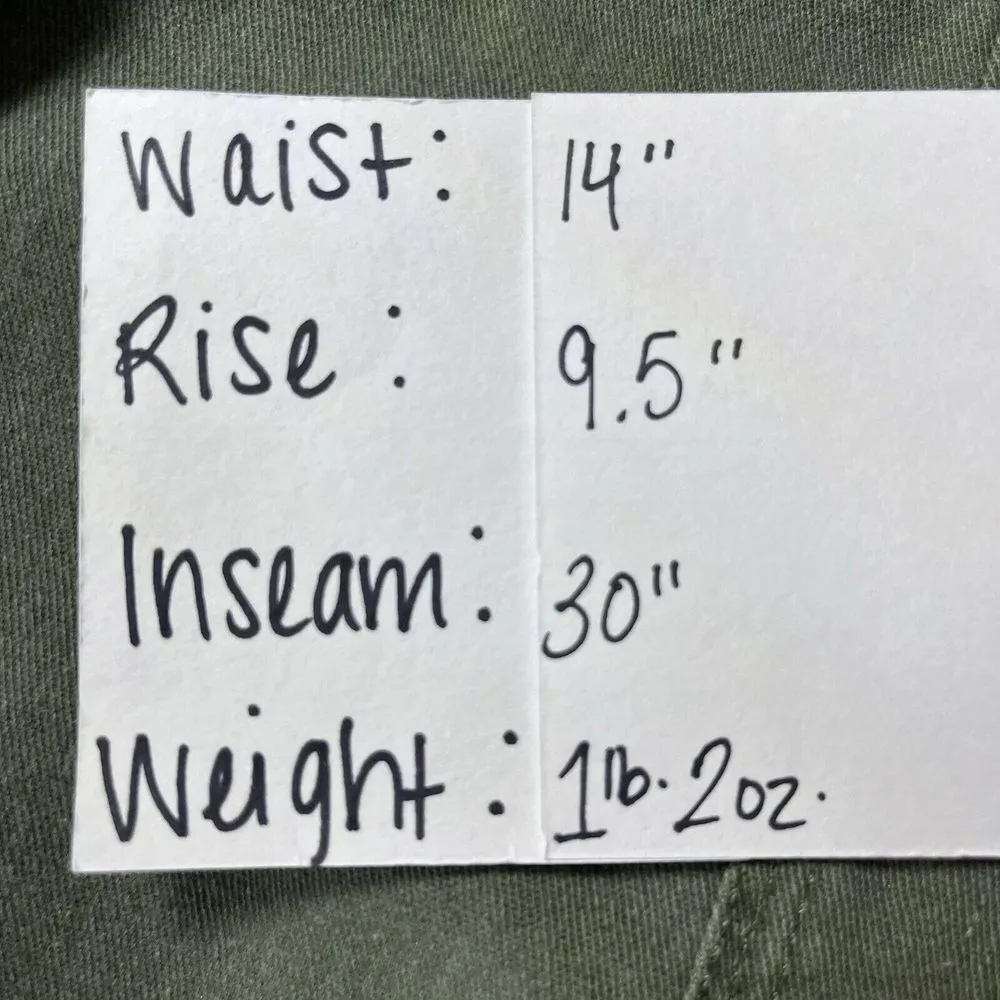 Waist: 14"
Rise: 9.5"
Inseam: 30"
Weight: 1lb. 2oz.